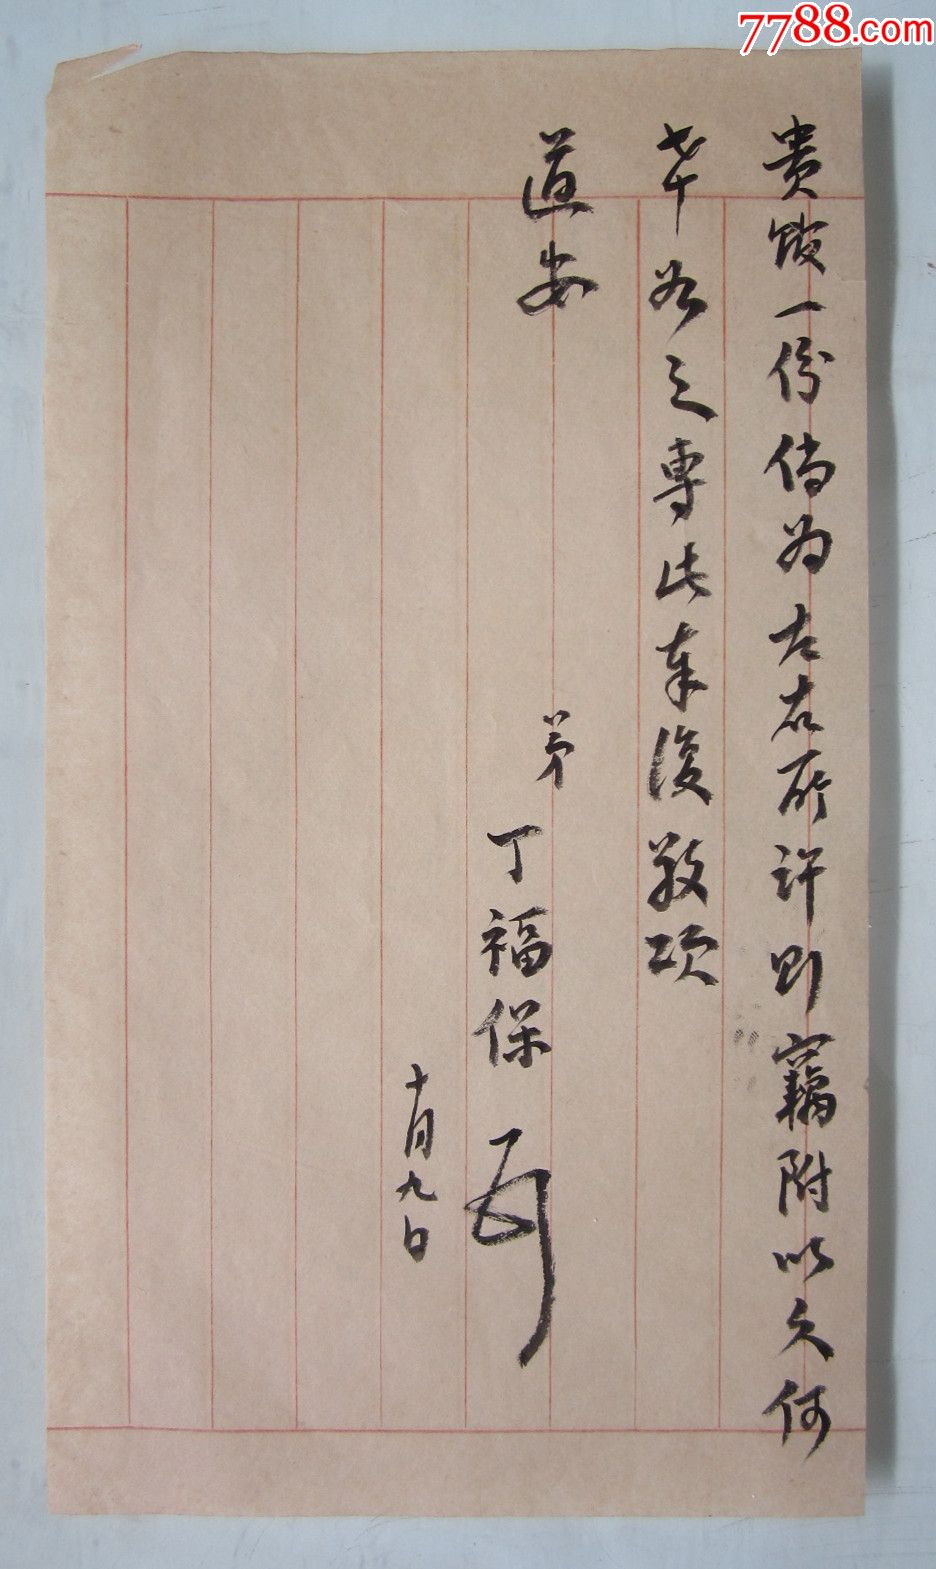 7788.com
贵馆一份倘为左右所许则窃附以文何
幸如之专此奉復敬颂
道安
弟
丁福保
十月九日